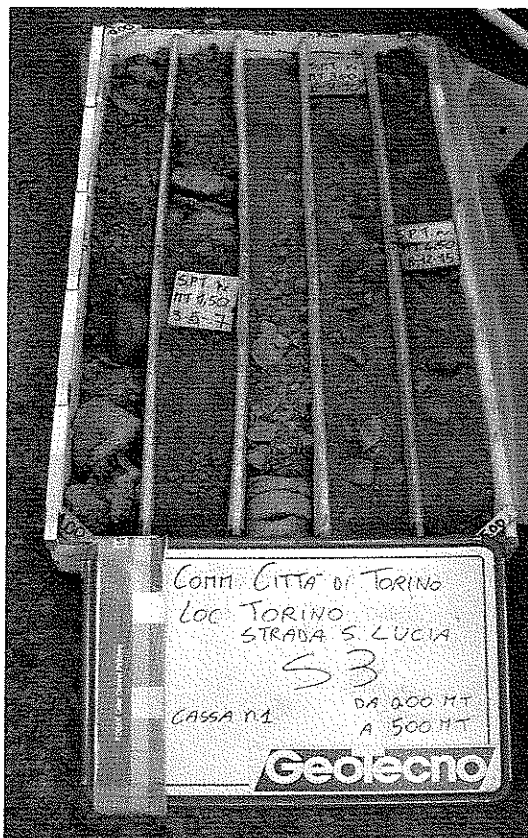 SPT N
MT 1.50
3-5-7
SPT N
COMM. CITTA' DI TORINO
LOC TORINO
STRADA S. LUCIA
S3
CASSA n.1
DA 0.00 MT
A 5.00 MT
Geotecno